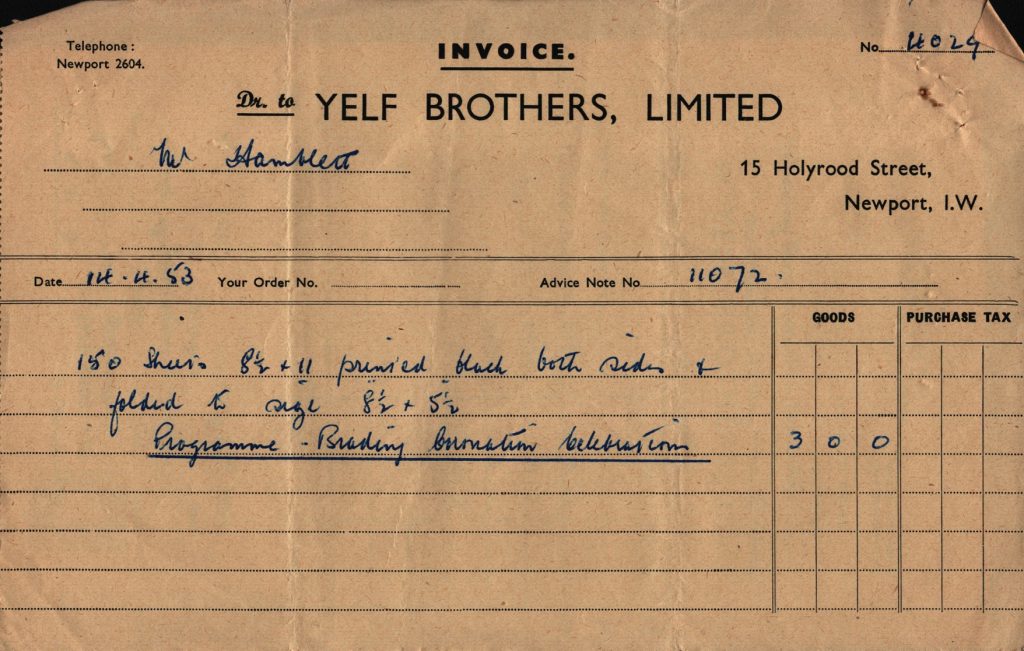 Telephone :
Newport 2604.
INVOICE.
No. 4029
Dr. to YELF BROTHERS, LIMITED
Mr Hamblett
15 Holyrood Street,
Newport, I.W.
Date 14.4.53 Your Order No. Advice Note No 11072.
GOODS PURCHASE TAX
150 Sheets 8½ + 11 printed black both sides &
folded to size 8½ + 5½
Programme - Brading Coronation Celebrations 3 0 0